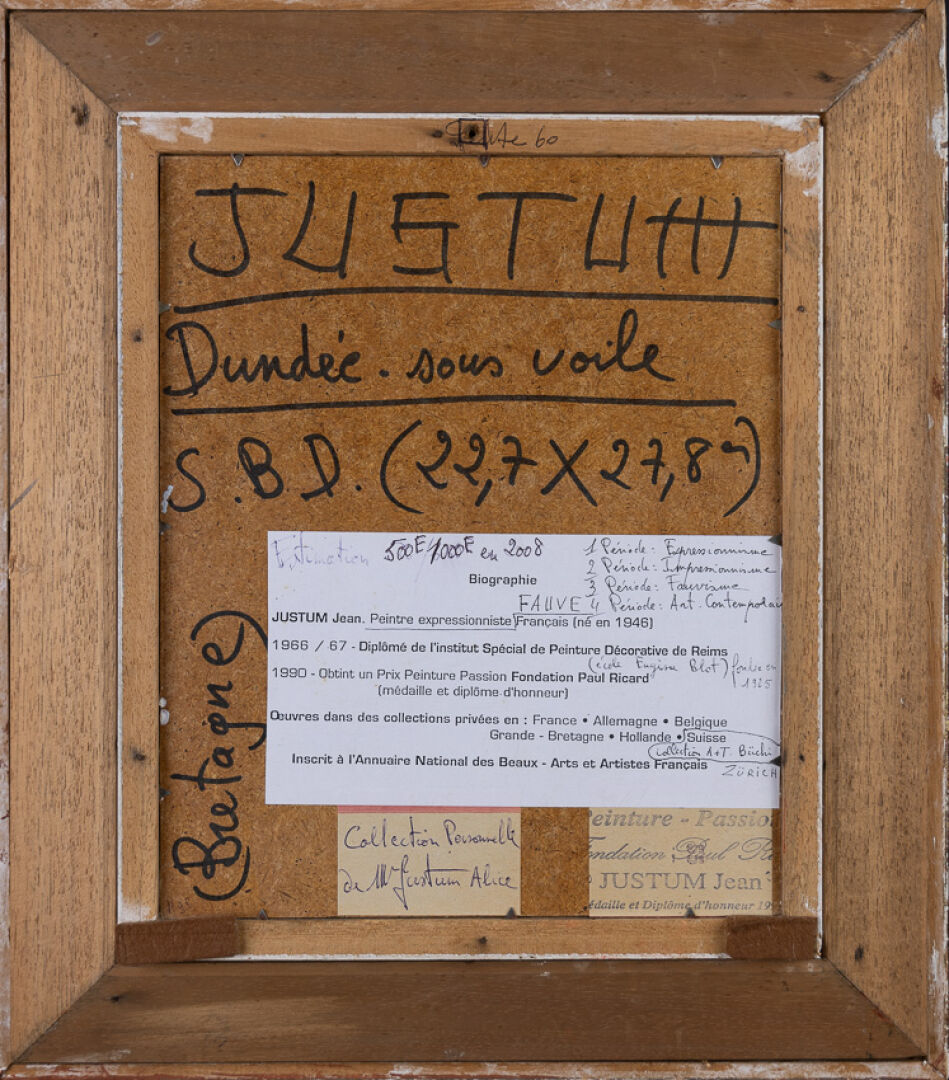 60
JUSTUM
Dundée. sous voile
S.B.D. (22,7 X 27,8
(Bretagne)
Estimation 500E/1000E en 2008
1 Période: Expressionnisme
2 Période: Impressionnisme
3 Période: Fauvisme
4 Période: Art. Contemporai
Biographie
FAUVE
JUSTUM Jean. Peintre expressionniste Français (né en 1946)
1966 / 67 - Diplômé de l'institut Spécial de Peinture Décorative de Reims
(école Eugène Blot) fondée en 1925
1990 - Obtint un Prix Peinture Passion Fondation Paul Ricard
(médaille et diplôme d'honneur)
Œuvres dans des collections privées en : France • Allemagne • Belgique
Grande - Bretagne • Hollande • Suisse
(collection A+T. Büchi
ZÜRICH
Inscrit à l'Annuaire National des Beaux - Arts et Artistes Français
Collection Personnelle
de Mr Justum Alice
einture - Passio
ondation Paul Ri
JUSTUM Jean
édaille et Diplôme d'honneur 19